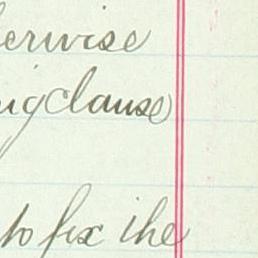 erwise
ing clause
to fix the